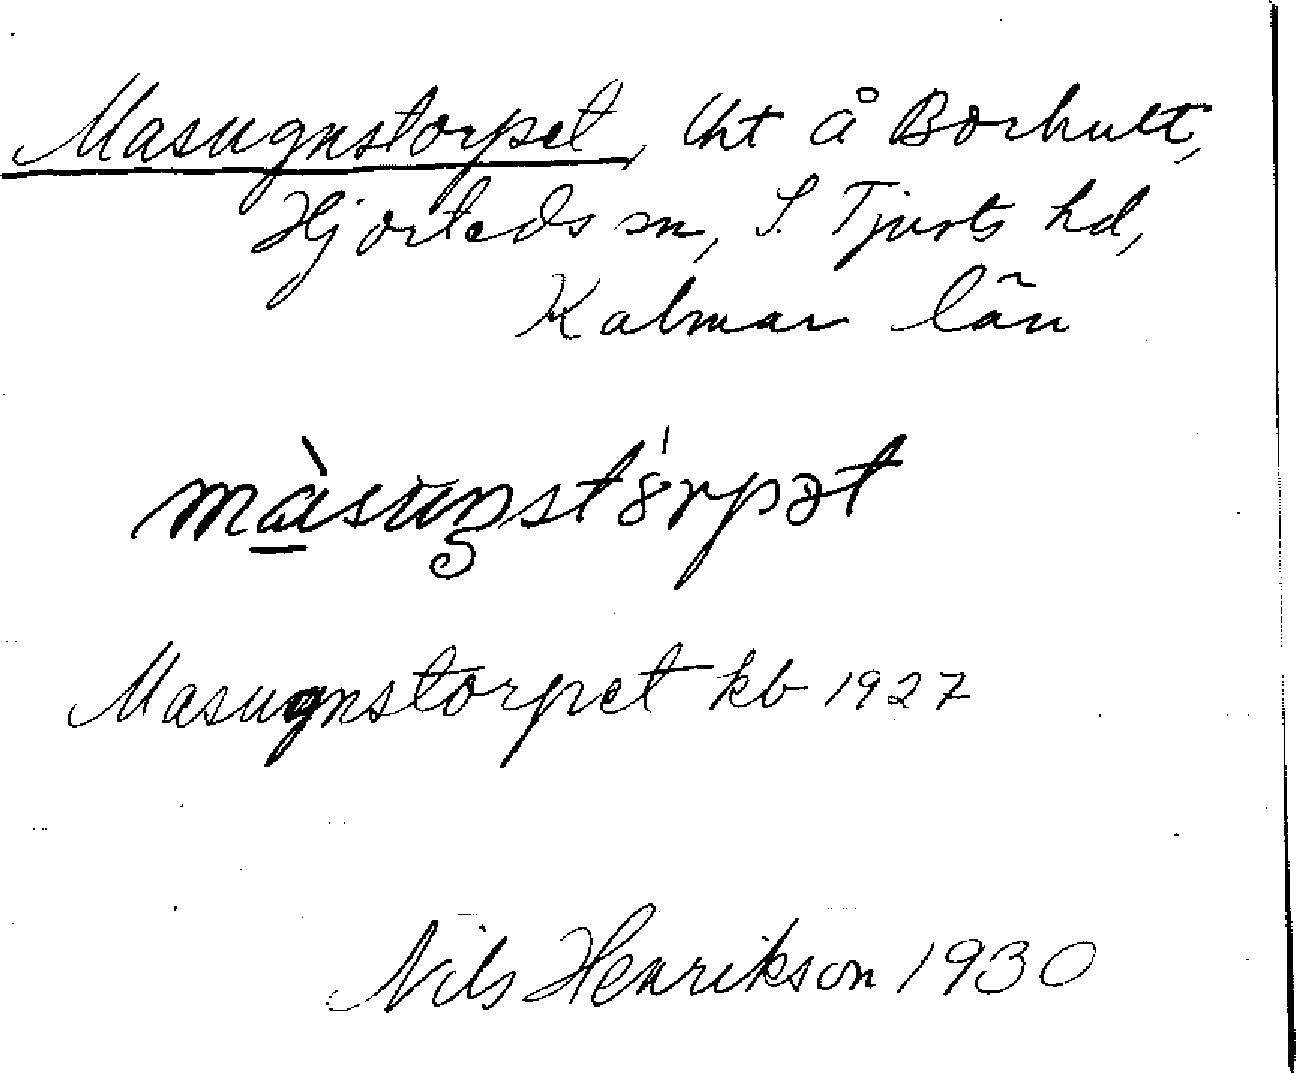 Masugnstorpet, lht å Borhult,
Hjorteds sn, S. Tjusts hd,
Kalmar län
Masugnstorpet kb 1927
Nils Henrikson 1930